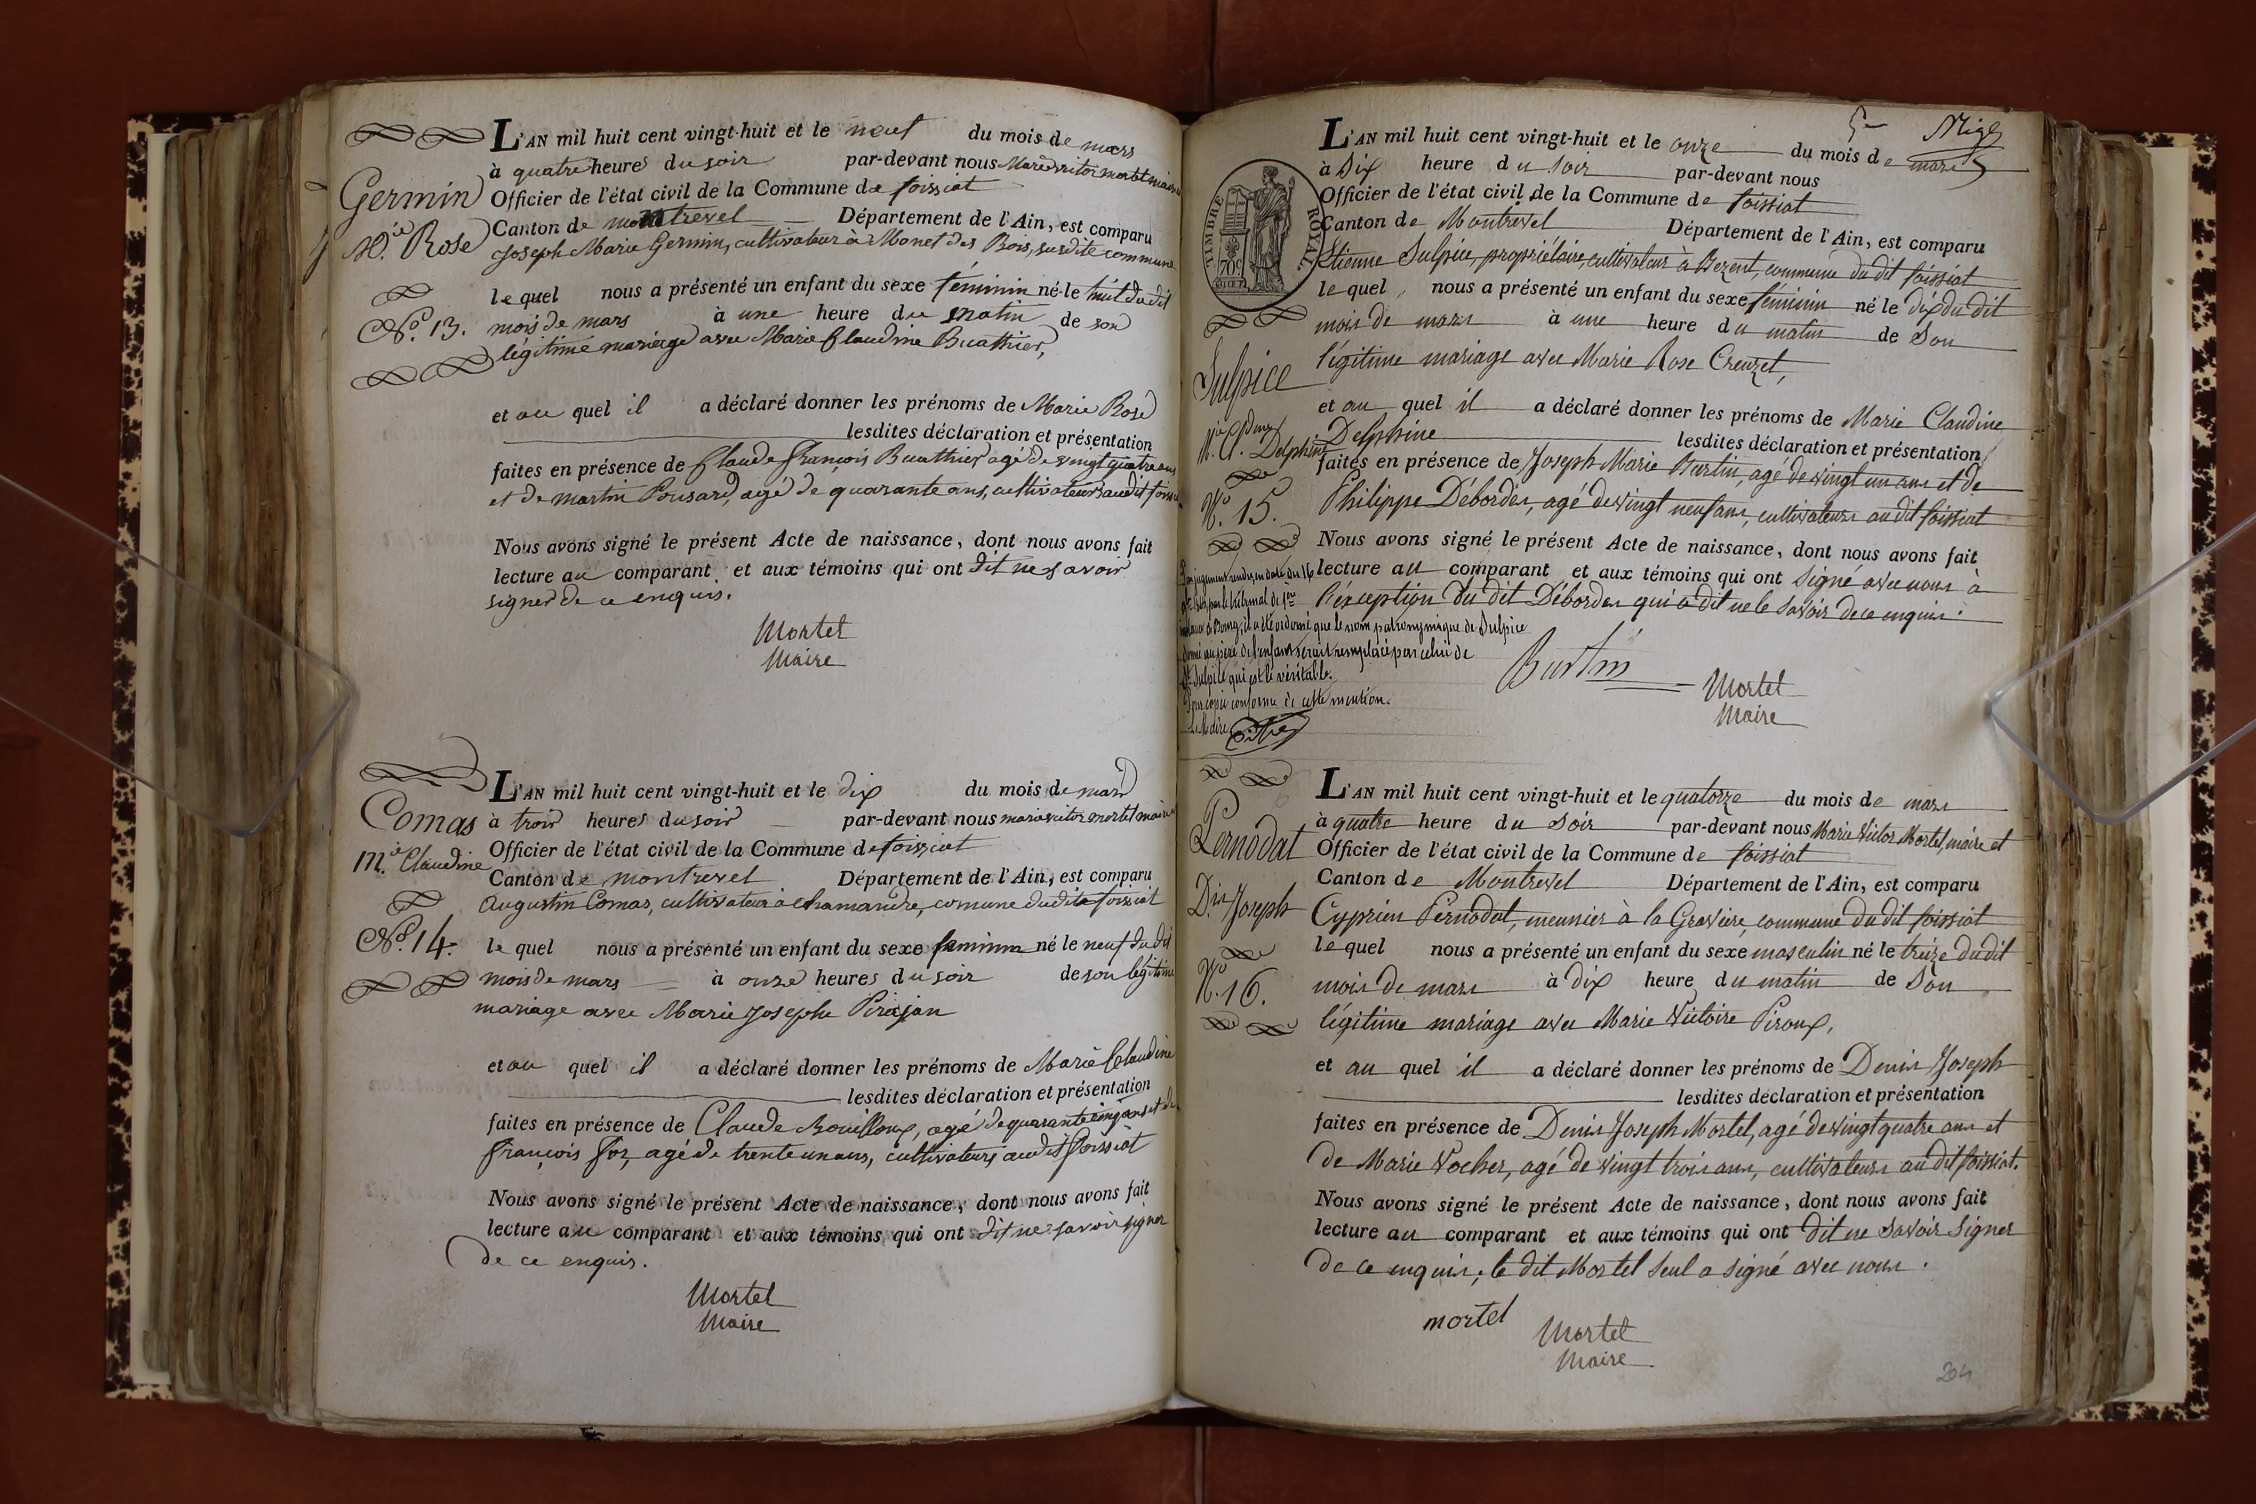 L'AN mil huit cent vingt-huit et le neuf du mois de mars
à quatre heures du soir par-devant nous Marie Victor Mortel maire
Germin
Officier de l'état civil de la Commune de foissiat
Canton de montrevel Département de l'Ain, est comparu
M.ie Rose
Joseph Marie Germin, cultivateur à Monet des Bois, susdite commune
le quel nous a présenté un enfant du sexe féminin né le huit du dit
N.o 13.
mois de mars à une heure du matin de son
légitime mariage avec Marie Claudine Buathier,
et au quel il a déclaré donner les prénoms de Marie Rose
lesdites déclaration et présentation
faites en présence de Claude François Buathier agé de vingt quatre ans
et de martin Pousard, agé de quarante ans, cultivateurs audit foissiat
Nous avons signé le présent Acte de naissance, dont nous avons fait
lecture au comparant et aux témoins qui ont dit ne savoir
signer de ce enquis.
Mortel
Maire
L'AN mil huit cent vingt-huit et le dix du mois de mars
Comas
à trois heures du soir par-devant nous marie victor mortel maire
M.ie Claudine
Officier de l'état civil de la Commune de foissiat
Canton de montrevel Département de l'Ain, est comparu
Augustin Comas, cultivateur à chamandre, comune dudit foissiat
N.o 14.
le quel nous a présenté un enfant du sexe feminin né le neuf du dit
mois de mars à onze heures du soir de son légitime
mariage avec Marie Josephe Pirajan
et au quel il a déclaré donner les prénoms de Marie Claudine
lesdites déclaration et présentation
faites en présence de Claude Bouilloux, agé de quarante cinq ans et de
françois for, agé de trente un ans, cultivateurs audit foissiat
Nous avons signé le présent Acte de naissance, dont nous avons fait
lecture au comparant et aux témoins qui ont dit ne savoir signer
de ce enquis.
Mortel
Maire
5-
L'AN mil huit cent vingt-huit et le onze du mois de mars
à Six heure du soir par-devant nous
Officier de l'état civil de la Commune de foissiat
Canton de Montrevel Département de l'Ain, est comparu
TIMBRE ROYAL
70c
Etienne Sulpice, propriétaire, cultivateur à Bezent, commune du dit foissiat
le quel nous a présenté un enfant du sexe féminin né le dix du dit
mois de mars à une heure du matin de Son
légitime mariage avec Marie Rose Creuzet,
Sulpice
et au quel il a déclaré donner les prénoms de Marie Claudine
Delphine lesdites déclaration et présentation
M.ie Cl.dine Delphine
faites en présence de Joseph Marie Burtin, agé de vingt un ans et de
N.o 15.
Philippe Débordes, agé de vingt neuf ans, cultivateurs au dit foissiat
Nous avons signé le présent Acte de naissance, dont nous avons fait
lecture au comparant et aux témoins qui ont Signé avec nous à
l'éxception du dit Débordes qui a dit ne le Savoir de ce enquis.
Par jugement rendu en date du 16
par le tribunal de 1ère
instance de Bourg, il a été ordonné que le nom patronymique de Sulpice
donné au père de l'enfant serait remplacé par celui de
St Sulpice qui est le véritable.
Pour copie conforme de cette mention.
Le Maire
Burtin
Mortel
Maire
L'AN mil huit cent vingt-huit et le quatorze du mois de mars
à quatre heure du Soir par-devant nous Marie Victor Mortel, maire et
Pernodat
Officier de l'état civil de la Commune de foissiat
Canton de Montrevel Département de l'Ain, est comparu
D.is Joseph
Cyprien Pernodat, meunier à la Gravière, commune du dit foissiat
le quel nous a présenté un enfant du sexe masculin né le treize du dit
N.o 16.
mois de mars à dix heure du matin de Son
légitime mariage avec Marie Victoire Piroux,
et au quel il a déclaré donner les prénoms de Denis Joseph
lesdites déclaration et présentation
faites en présence de Denis Joseph Mortel, agé de vingt quatre ans et
de Marie Vocher, agé de vingt trois ans, cultivateurs au dit foissiat.
Nous avons signé le présent Acte de naissance, dont nous avons fait
lecture au comparant et aux témoins qui ont dit ne Savoir Signer
de ce enquis, le dit Mortel Seul a signé avec nous.
mortel
Mortel
Maire
204